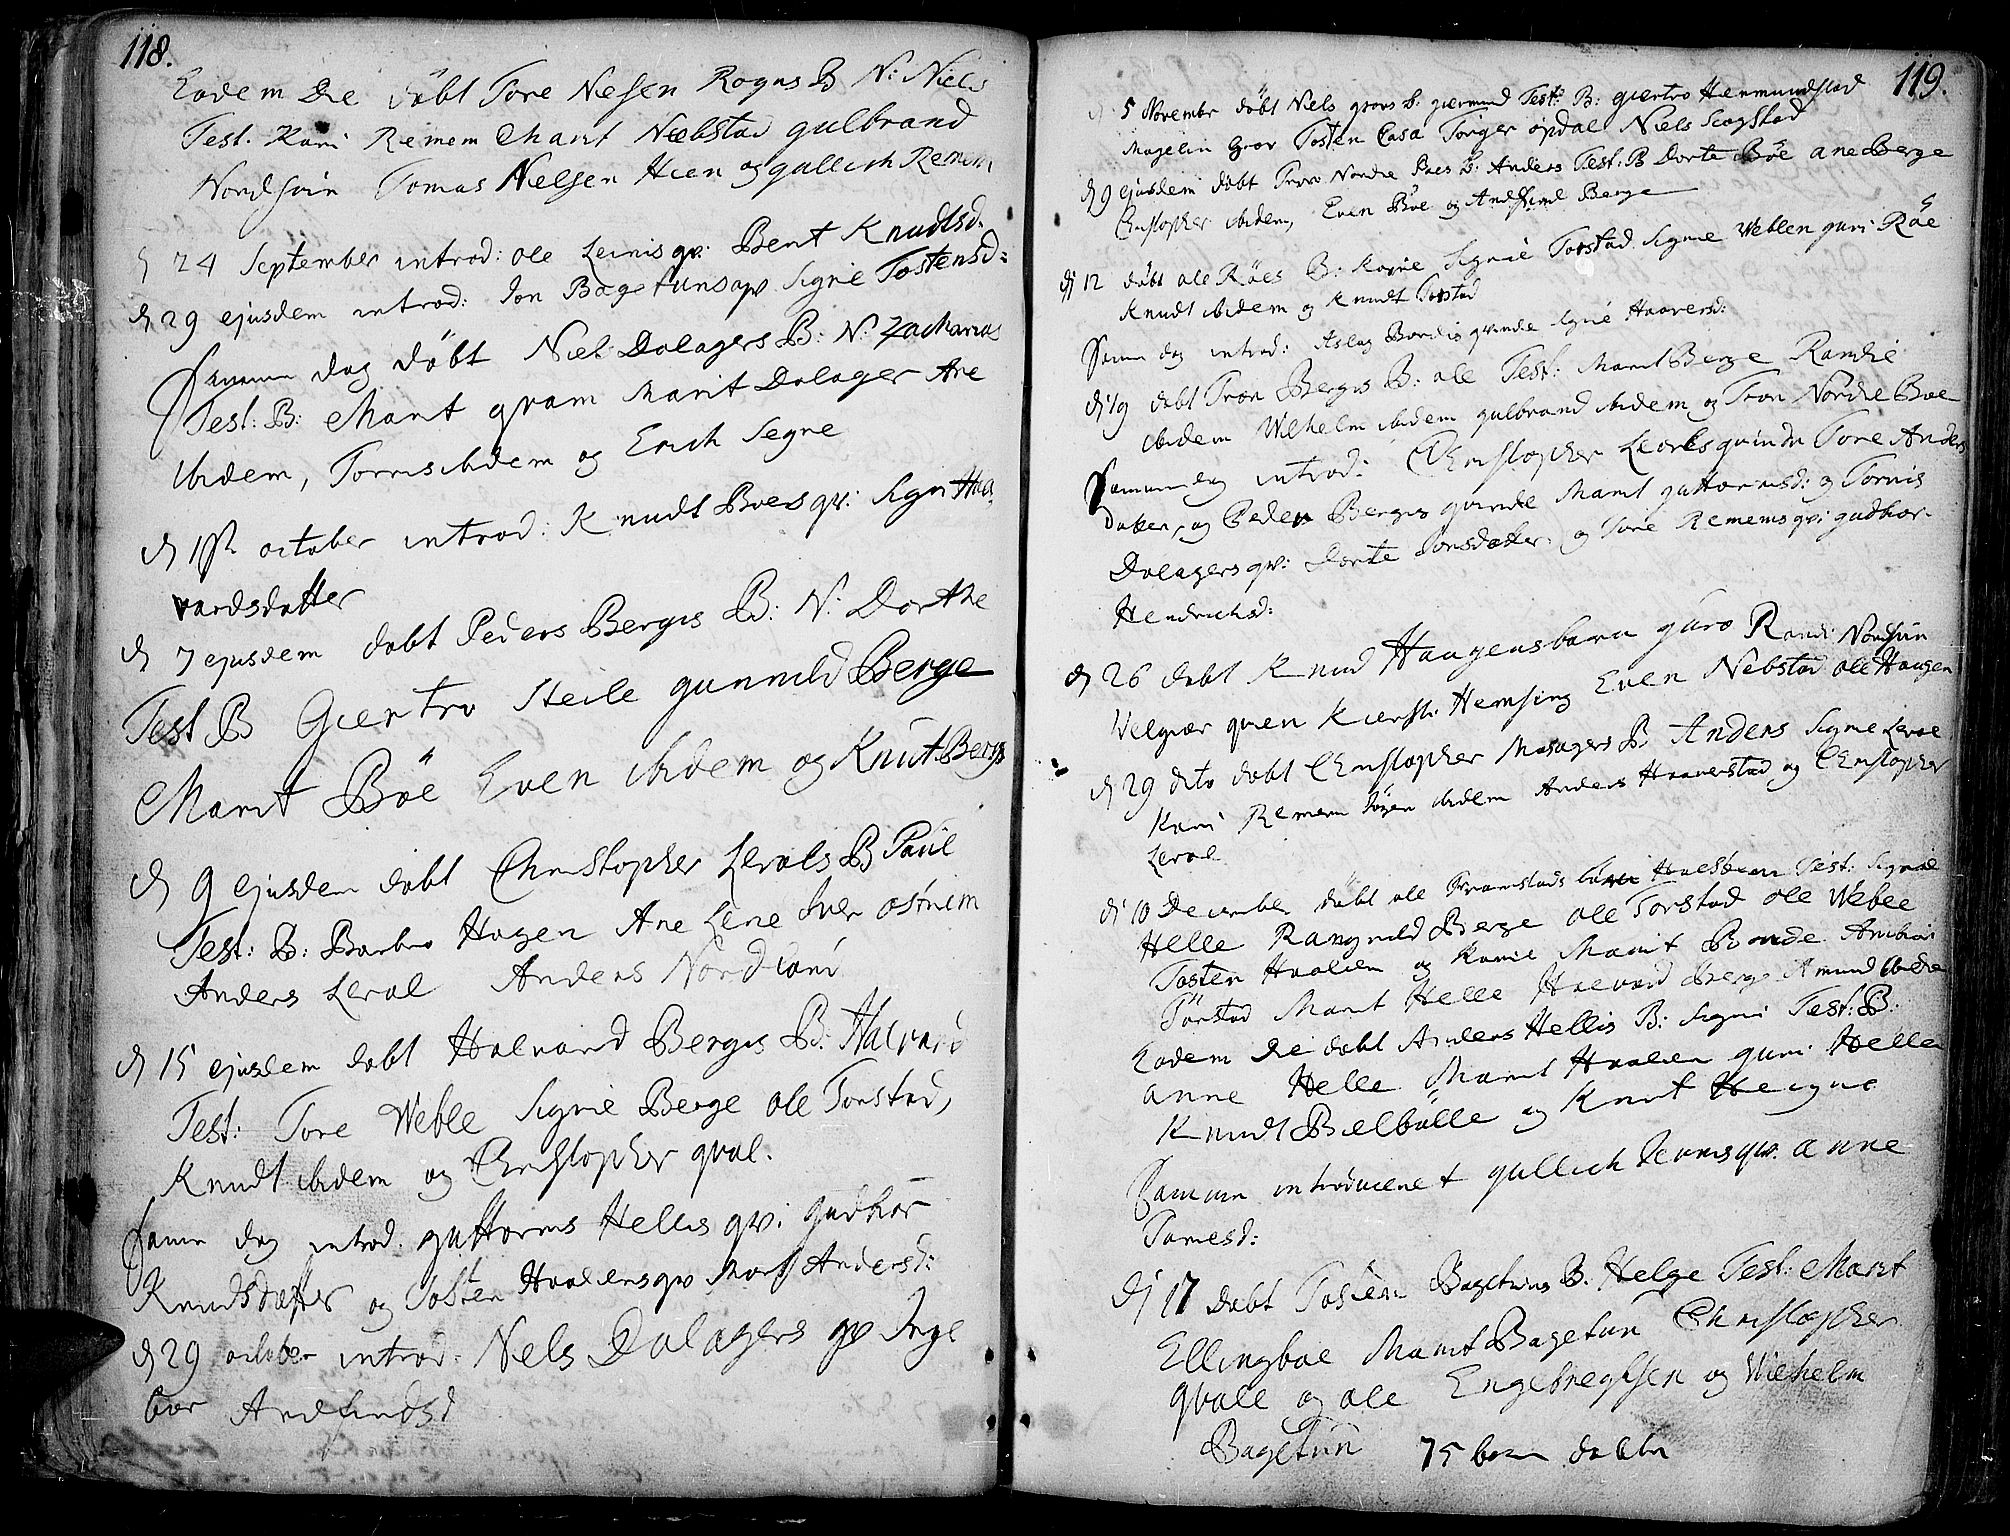 118.
Eodem Die döbt Tore Nelsen Rogns B N: Niels
Test. Kari Remem Marit Næbstad gulbrand
Nordsvin Tomas Nielsen Hien og gullich Remem
d 24 September introd: ole Leinis qv: Berit Knudtsd.
d 29 ejusdem introd: Jon Bagetuns qv Signe Tostensd:
Samme dag döbt Niels Dalagers B: N: Zacharias
Test: B: Marit qvam Marit Dalager Are
ibidem, Tormis ibidem og Erich Segne
d 1st october introd: Knudt Boes qv: Sigri Haa
vardsdatter
d 7 ejusdem döbt Peders Bergis B: N: Dorthe
Test B Giertro Steile gunnild Berge
Marit Böe Even ibidem og Knut Berge
d 9 ejusdem dabt Christopher Lerals B Paul
Test: B: Barbro Hagen Ane Lene Iver ostrem
Anders Leral Anders
d 15 ejusdem dabt Halvard Bergis B: Halvard
Test: Tore Weble Signe Berge ole Torstad,
Knudt ibidem og Christopher qval.
Samme dag introd. guttorms Hellis qv: gudbor
Knudsdatter og Tosten Haaliens qv Marit Andersd:
d 29 october introd. Nels Dalagers qv Inge
bor
119.
d 5 Novembr döbt Niels grovs B: giermund Test: B: giertro Hermundstad
Magelin grov Tosten Casa Torger opdal Niels Scogstad
d 9 ejusdem döbt Tron Nordre Boes B: Anders Test: B Dorte Böe ane Berge
Christopher ibidem, Even Böe og Andfind Berge
d 12 döbt ole Röes B: Karie Signie Torstad Signe Weblen guri Röe
Knudt ibidem og Knudt Torstad
Samme dag introd: Aslag qvinde Signe Haaversd:
d 19 dabt Tron Bergis B: ole Test: Marit Berge Randie
ibidem Wilhelm ibidem gulbrand ibidem og Tron Nordre Böe
Samme dag introd: Christopher Lerals qvinde Tore Anders
datter, og Peder Bergis qvinde Marit guttormsd: og Tormis
Dalagers qv: Dorte Jonsdatter og Tore Remems qv: gudbor
Hendrichsd:
d 26 dabt Knud Haugens barn guro Randi Nordsvin
Velgiær qvien Kiersti Hemsing Even Nebstad ole Haugen
d 29 dito dabt Christopher B: Anders Signe Leral
Kari Remem ibidem Anders Haaverstad og Christopher
Leral
d 10 December döbt ole Test: Signe
Helle Rangnild Berge ole Torstad ole Weble
Tosten Haalien og Karie Marit Bonde
Torstad Marit Helle Halvard Berge Amund ibidem
Eodem die dabt Anders Hellis B: Signi Test: B:
anne Helle Marit Haalien guri Helle
Knudt Bielbölle og Knut Hegne
Samme introduceret gullich qv: anne
Tomesd:
d 17 dabt Tosten Bagetuns B: Helge Test: Marit
Ellingboe Marit Bagetun Christopher
qvale og ole Engebregtsen og Wilhelm
Bagetun 75 born dabte